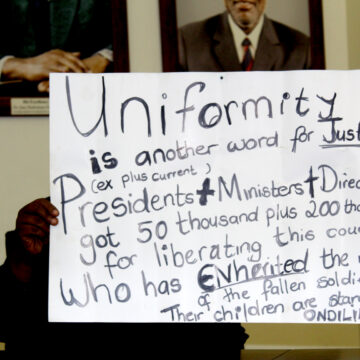 Uniformity
is another word for Just
(ex plus current)
Presidents + Ministers + Direc
got 50 thousand plus 200 tho
for liberating this cou
Who has ENherited the
of the fallen soldi
Their children are stan
ONDILI